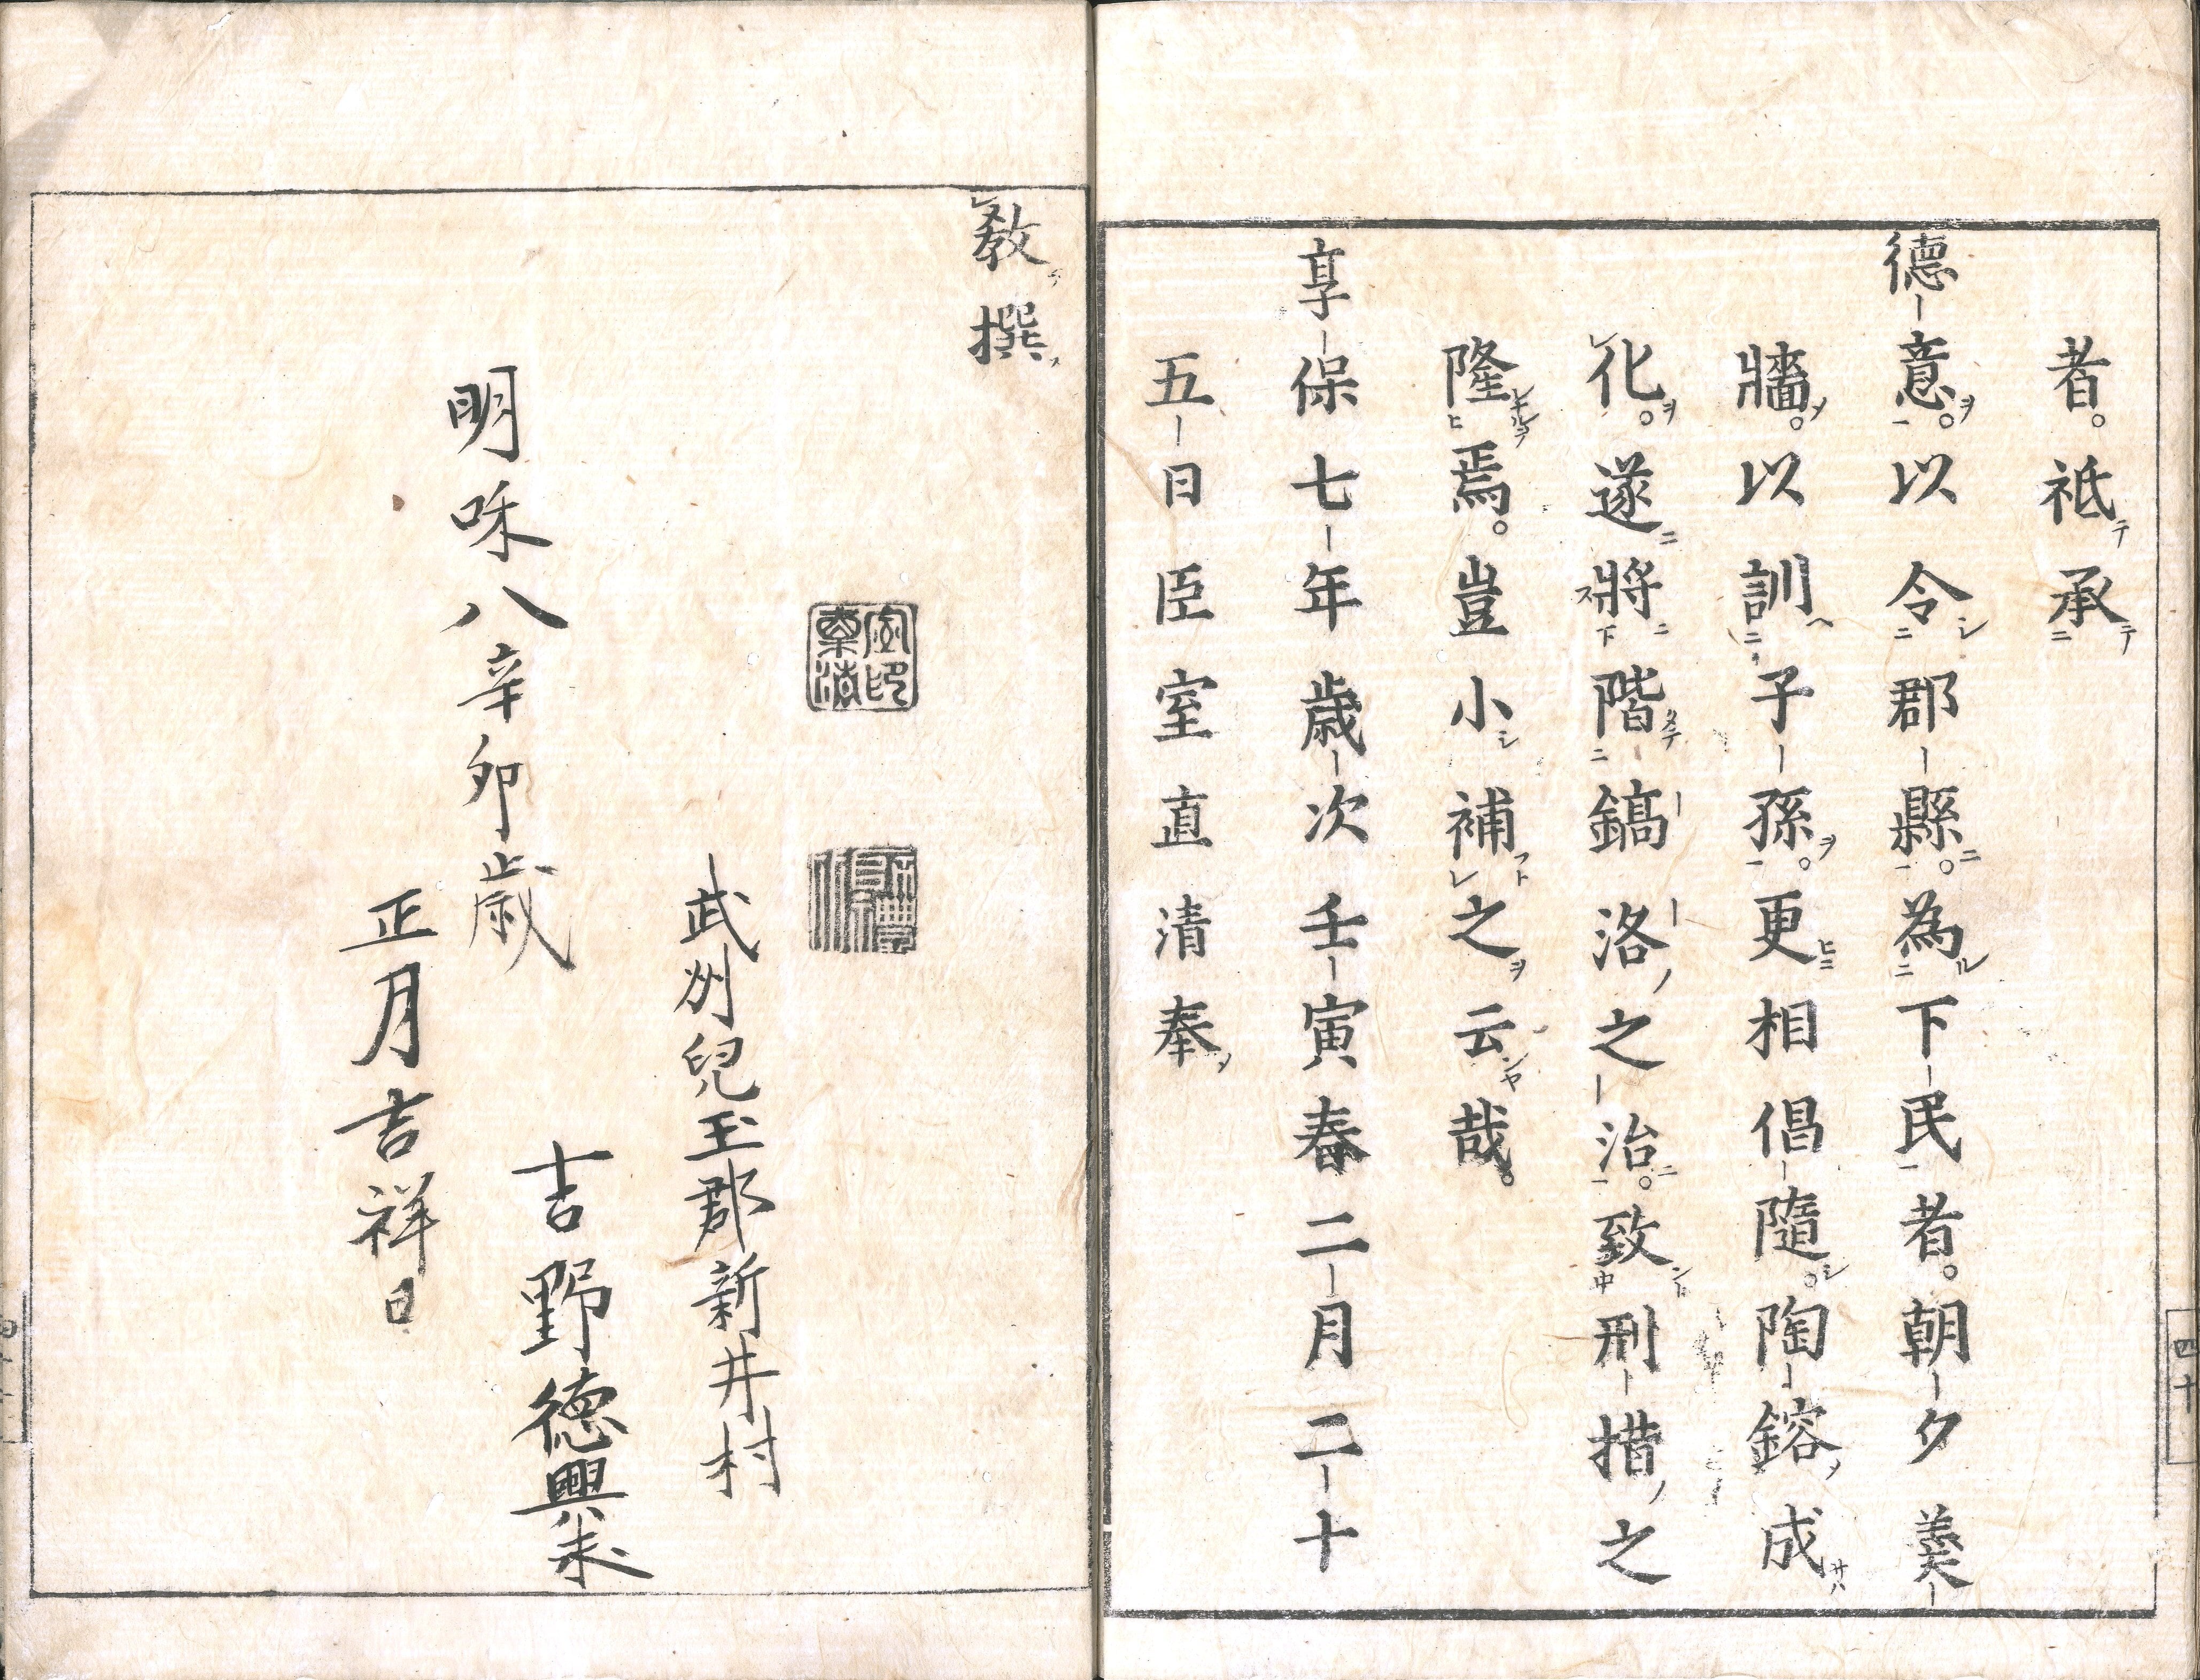 者。祗承
德意。以令郡縣。為下民者。朝夕羹
牆。以訓子孫。更相倡隨。陶鎔成
化。遂將階鎬洛之治。致刑措之
隆焉。豈小補之云哉。
享保七年歳次壬寅春二月二十
五日臣室直清奉
四十
教撰
室印
直清
武州兒玉郡新井村
吉野徳興
明味八辛卯歳
正月吉祥日